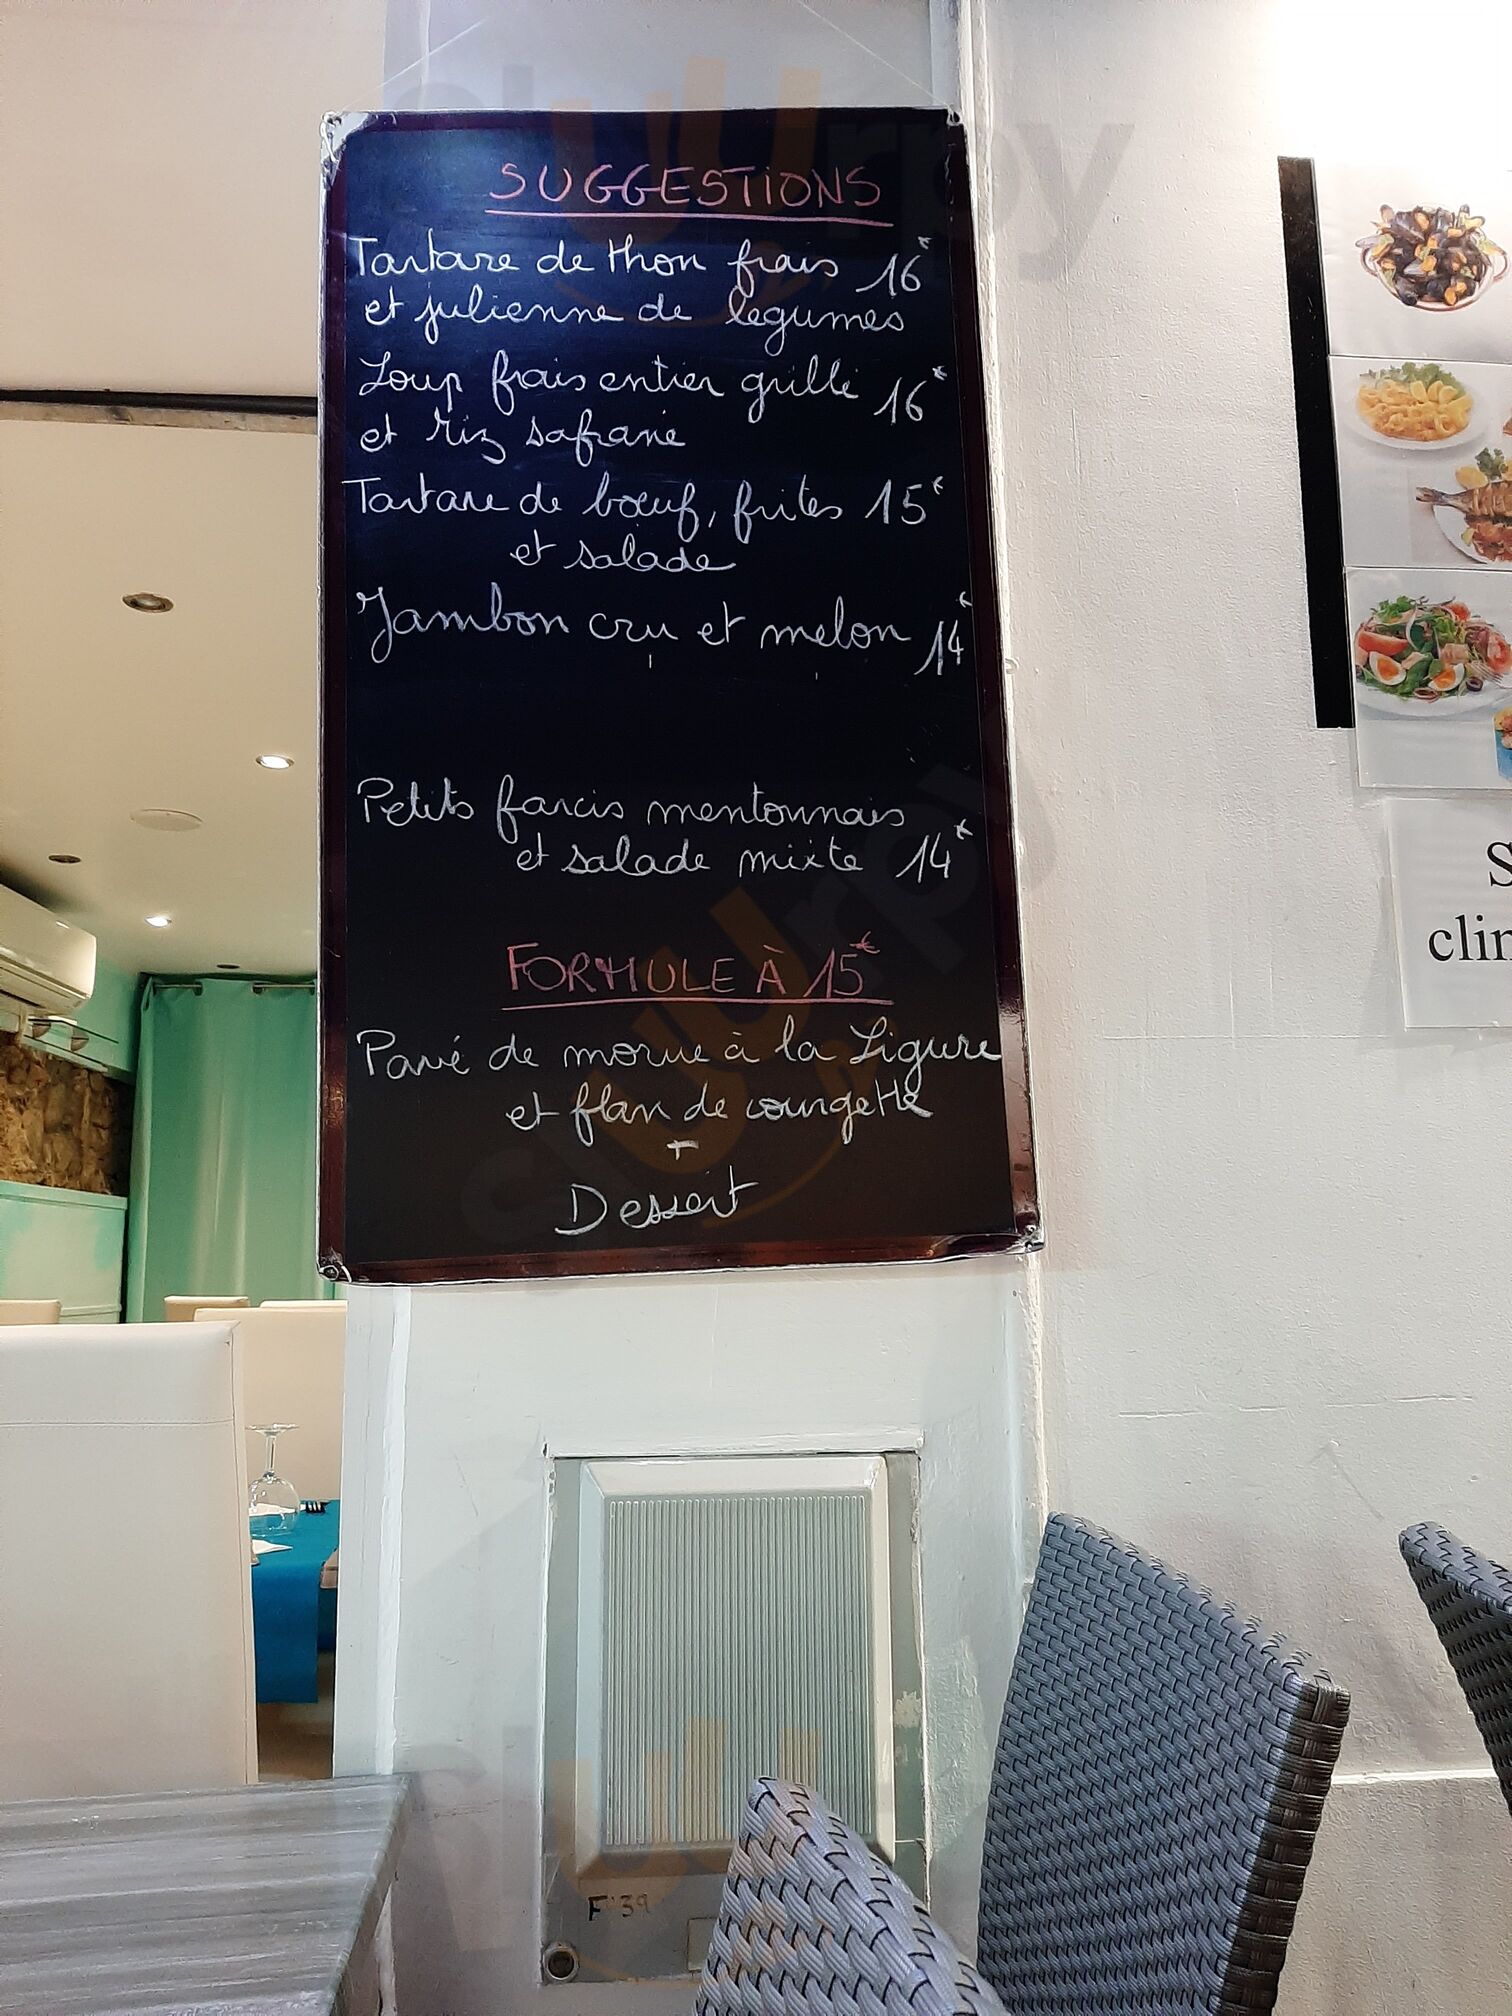 SUGGESTIONS
Tartare de thon frais 16€
et julienne de legumes
Loup frais entier grillé 16€
et riz safrané
Tartare de bœuf, frites 15€
et salade
Jambon cru et melon 14€
Petits farcis mentonnais
et salade mixte 14€
FORMULE À 15€
Pavé de morue à la Ligure
et flan de courgette
+
Dessert
S
clim
F 39
sluurpy
sluurpy
sluurpy